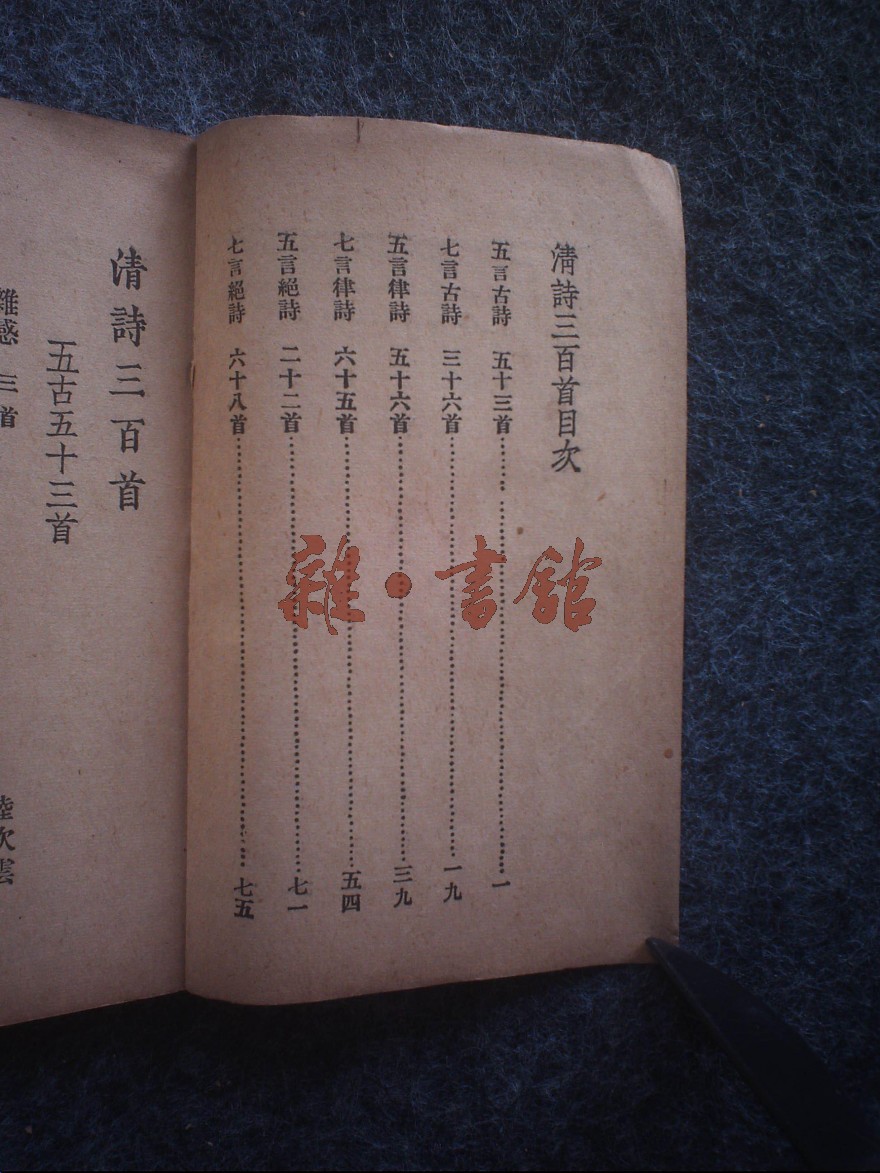 清詩三百首目次
五言古詩 五十三首 一
七言古詩 三十六首 一九
五言律詩 五十六首 三九
七言律詩 六十五首 五四
五言絕詩 二十二首 七一
七言絕詩 六十八首 七五
清詩三百首
五古五十三首
雜感 三首 陸次雲
雜·書館